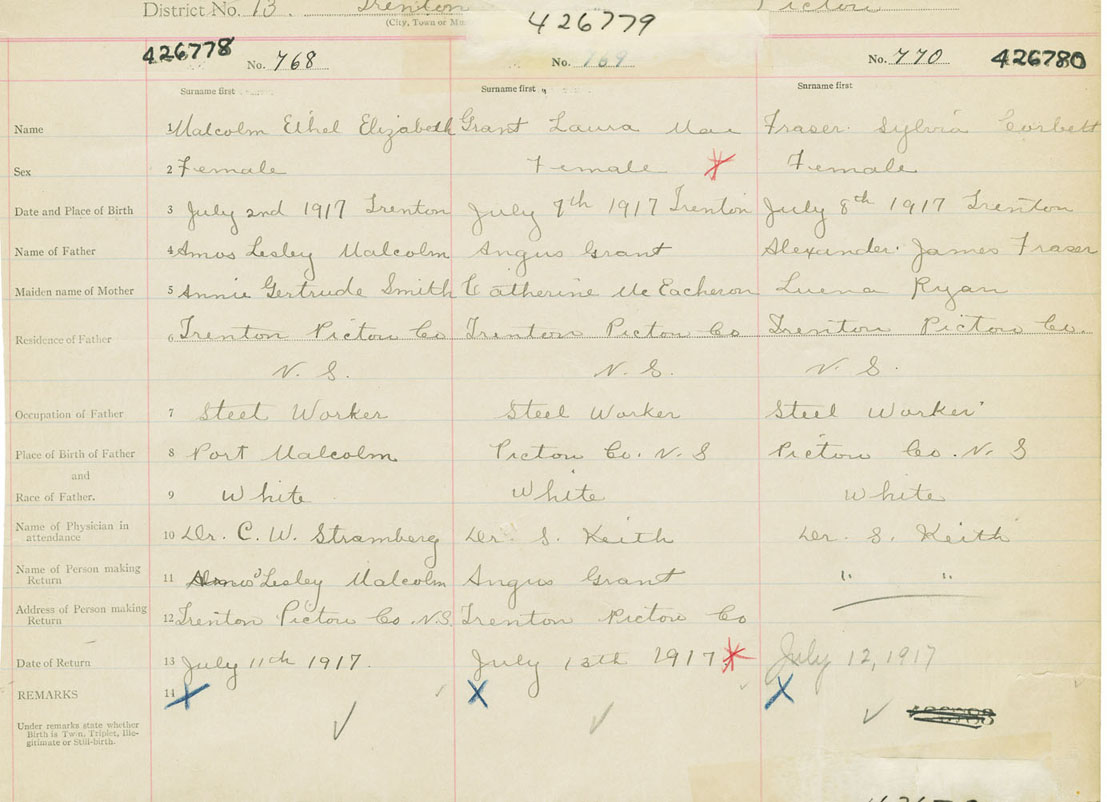 District No. 13. Trenton Pictou
(City, Town or
426779
426778 No. 768 No. 769 No. 770 426780
Surname first Surname first Surname first
Name 1 Malcolm Ethel Elizabeth Grant Laura Mae Fraser Sylvia Corbett
Sex 2 Female Female Female
Date and Place of Birth 3 July 2nd 1917 Trenton July 7th 1917 Trenton July 8th 1917 Trenton
Name of Father 4 Amos Lesley Malcolm Angus Grant Alexander James Fraser
Maiden name of Mother 5 Annie Gertrude Smith Catherine McEacheron Luena Ryan
Residence of Father 6 Trenton Pictou Co Trenton Pictou Co Trenton Pictou Co.
N. S. N. S. N. S.
Occupation of Father 7 Steel Worker Steel Worker Steel Worker
Place of Birth of Father 8 Port Malcolm Pictou Co. N. S Pictou Co. N. S
and
Race of Father. 9 White White White
Name of Physician in
attendance 10 Dr. C. W. Stramberg Dr. S. Keith Dr. S. Keith
Name of Person making
Return 11 Amos Lesley Malcolm Angus Grant " "
Address of Person making
Return 12 Trenton Pictou Co. N.S. Trenton Pictou Co
Date of Return 13 July 11th 1917. July 12th 1917 July 12, 1917
REMARKS 14
Under remarks state whether
Birth is Twin, Triplet, Ille-
gitimate or Still-birth.